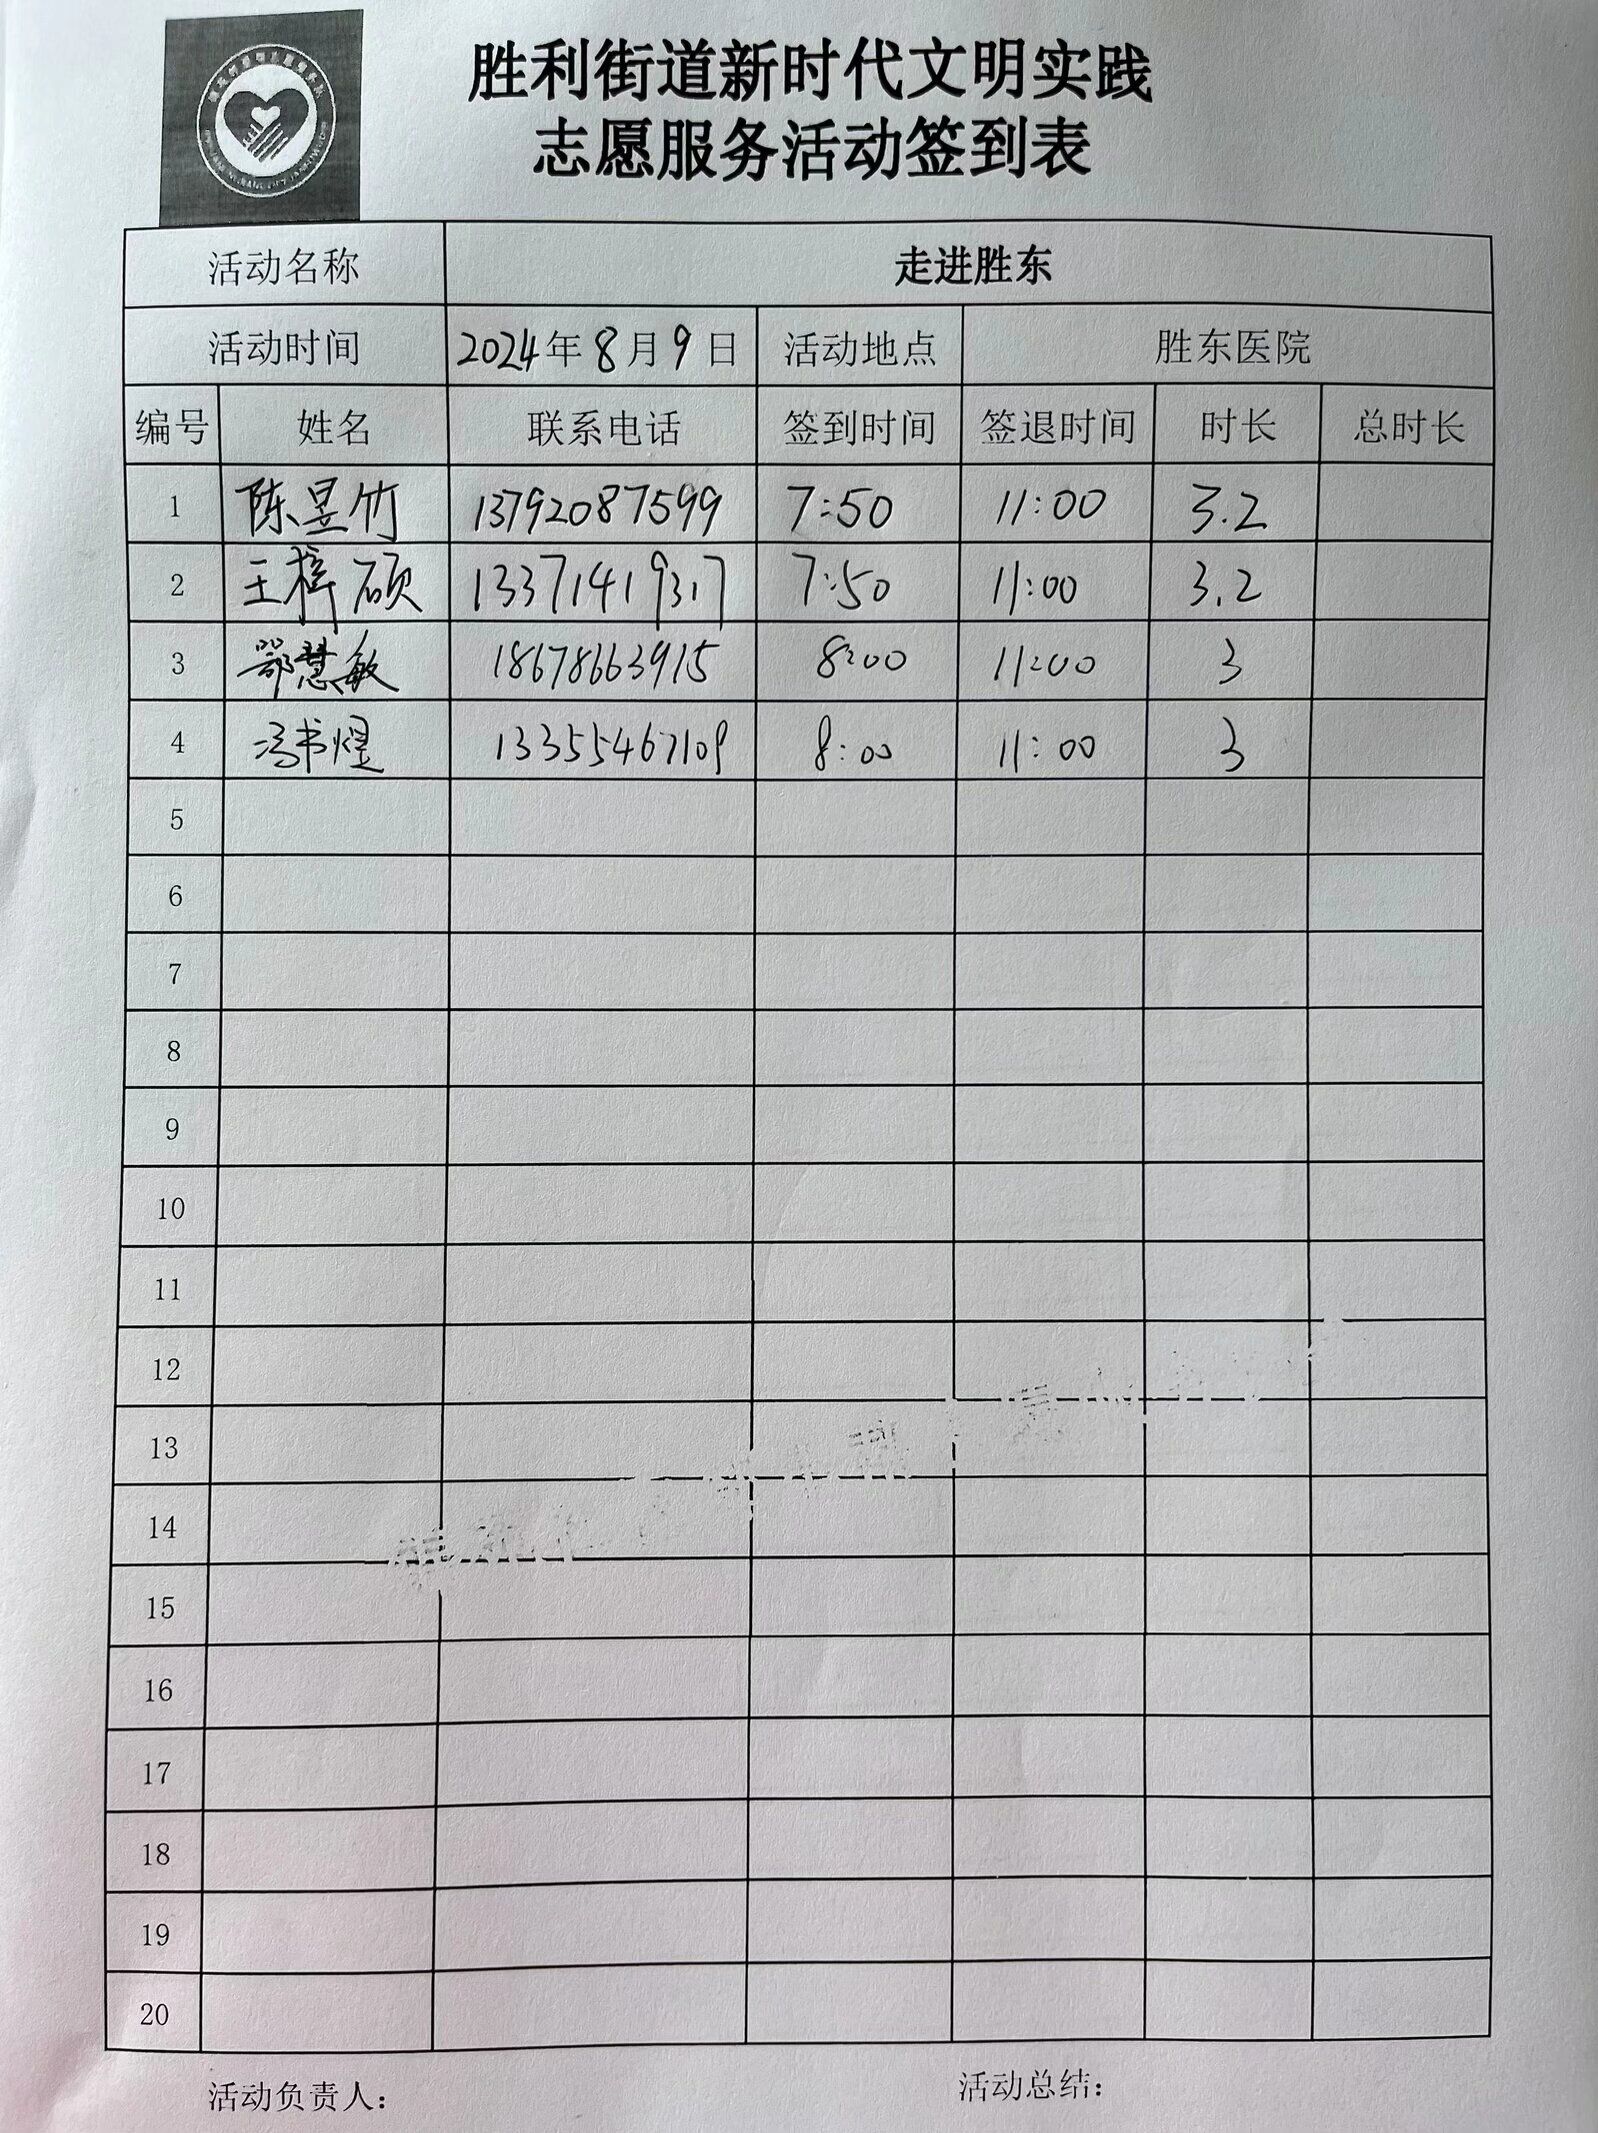 胜利街道新时代文明实践
志愿服务活动签到表
活动名称 走进胜东
活动时间 2024年8月9日 活动地点 胜东医院
编号 姓名 联系电话 签到时间 签退时间 时长 总时长
1 陈昱竹 13792087599 7:50 11:00 3.2
2 王梓硕 13371419317 7:50 11:00 3.2
3 鄂慧敏 18678663915 8:00 11:00 3
4 冯书煜 13355467109 8:00 11:00 3
5
6
7
8
9
10
11
12
13
14
15
16
17
18
19
20
活动负责人： 活动总结：